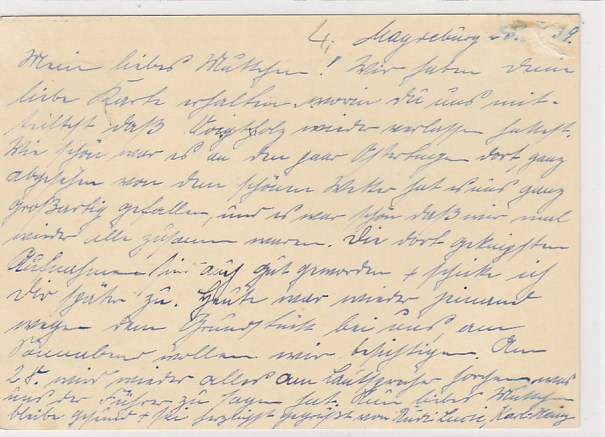 4. Magdeburg 39.
Mein liebes Muttchen! Wir haben Deine
liebe Karte erhalten, worin Du uns mit-
teiltest daß Voigtholz wieder verlassen hattest.
Wie schön war es an den paar Ostertagen dort, ganz
abgesehen von dem schönen Wetter hat es uns ganz
großartig gefallen, und es war schön daß wir mal
wieder alle zusamm waren. Die dort geknipsten
Aufnahmen sind auch gut geworden + schicke ich
Dir später zu. Heute war wieder jemand
wegen dem Grundstück bei uns, am
Sonnabend wollen wir besichtigen. Am
28. wird wieder alles am Lautsprecher horchen was
uns der Führer zu sagen hat. Nun liebes Muttchen
bleibe gesund + sei herzlichst gegrüßt von Rudi Karl-Heinz